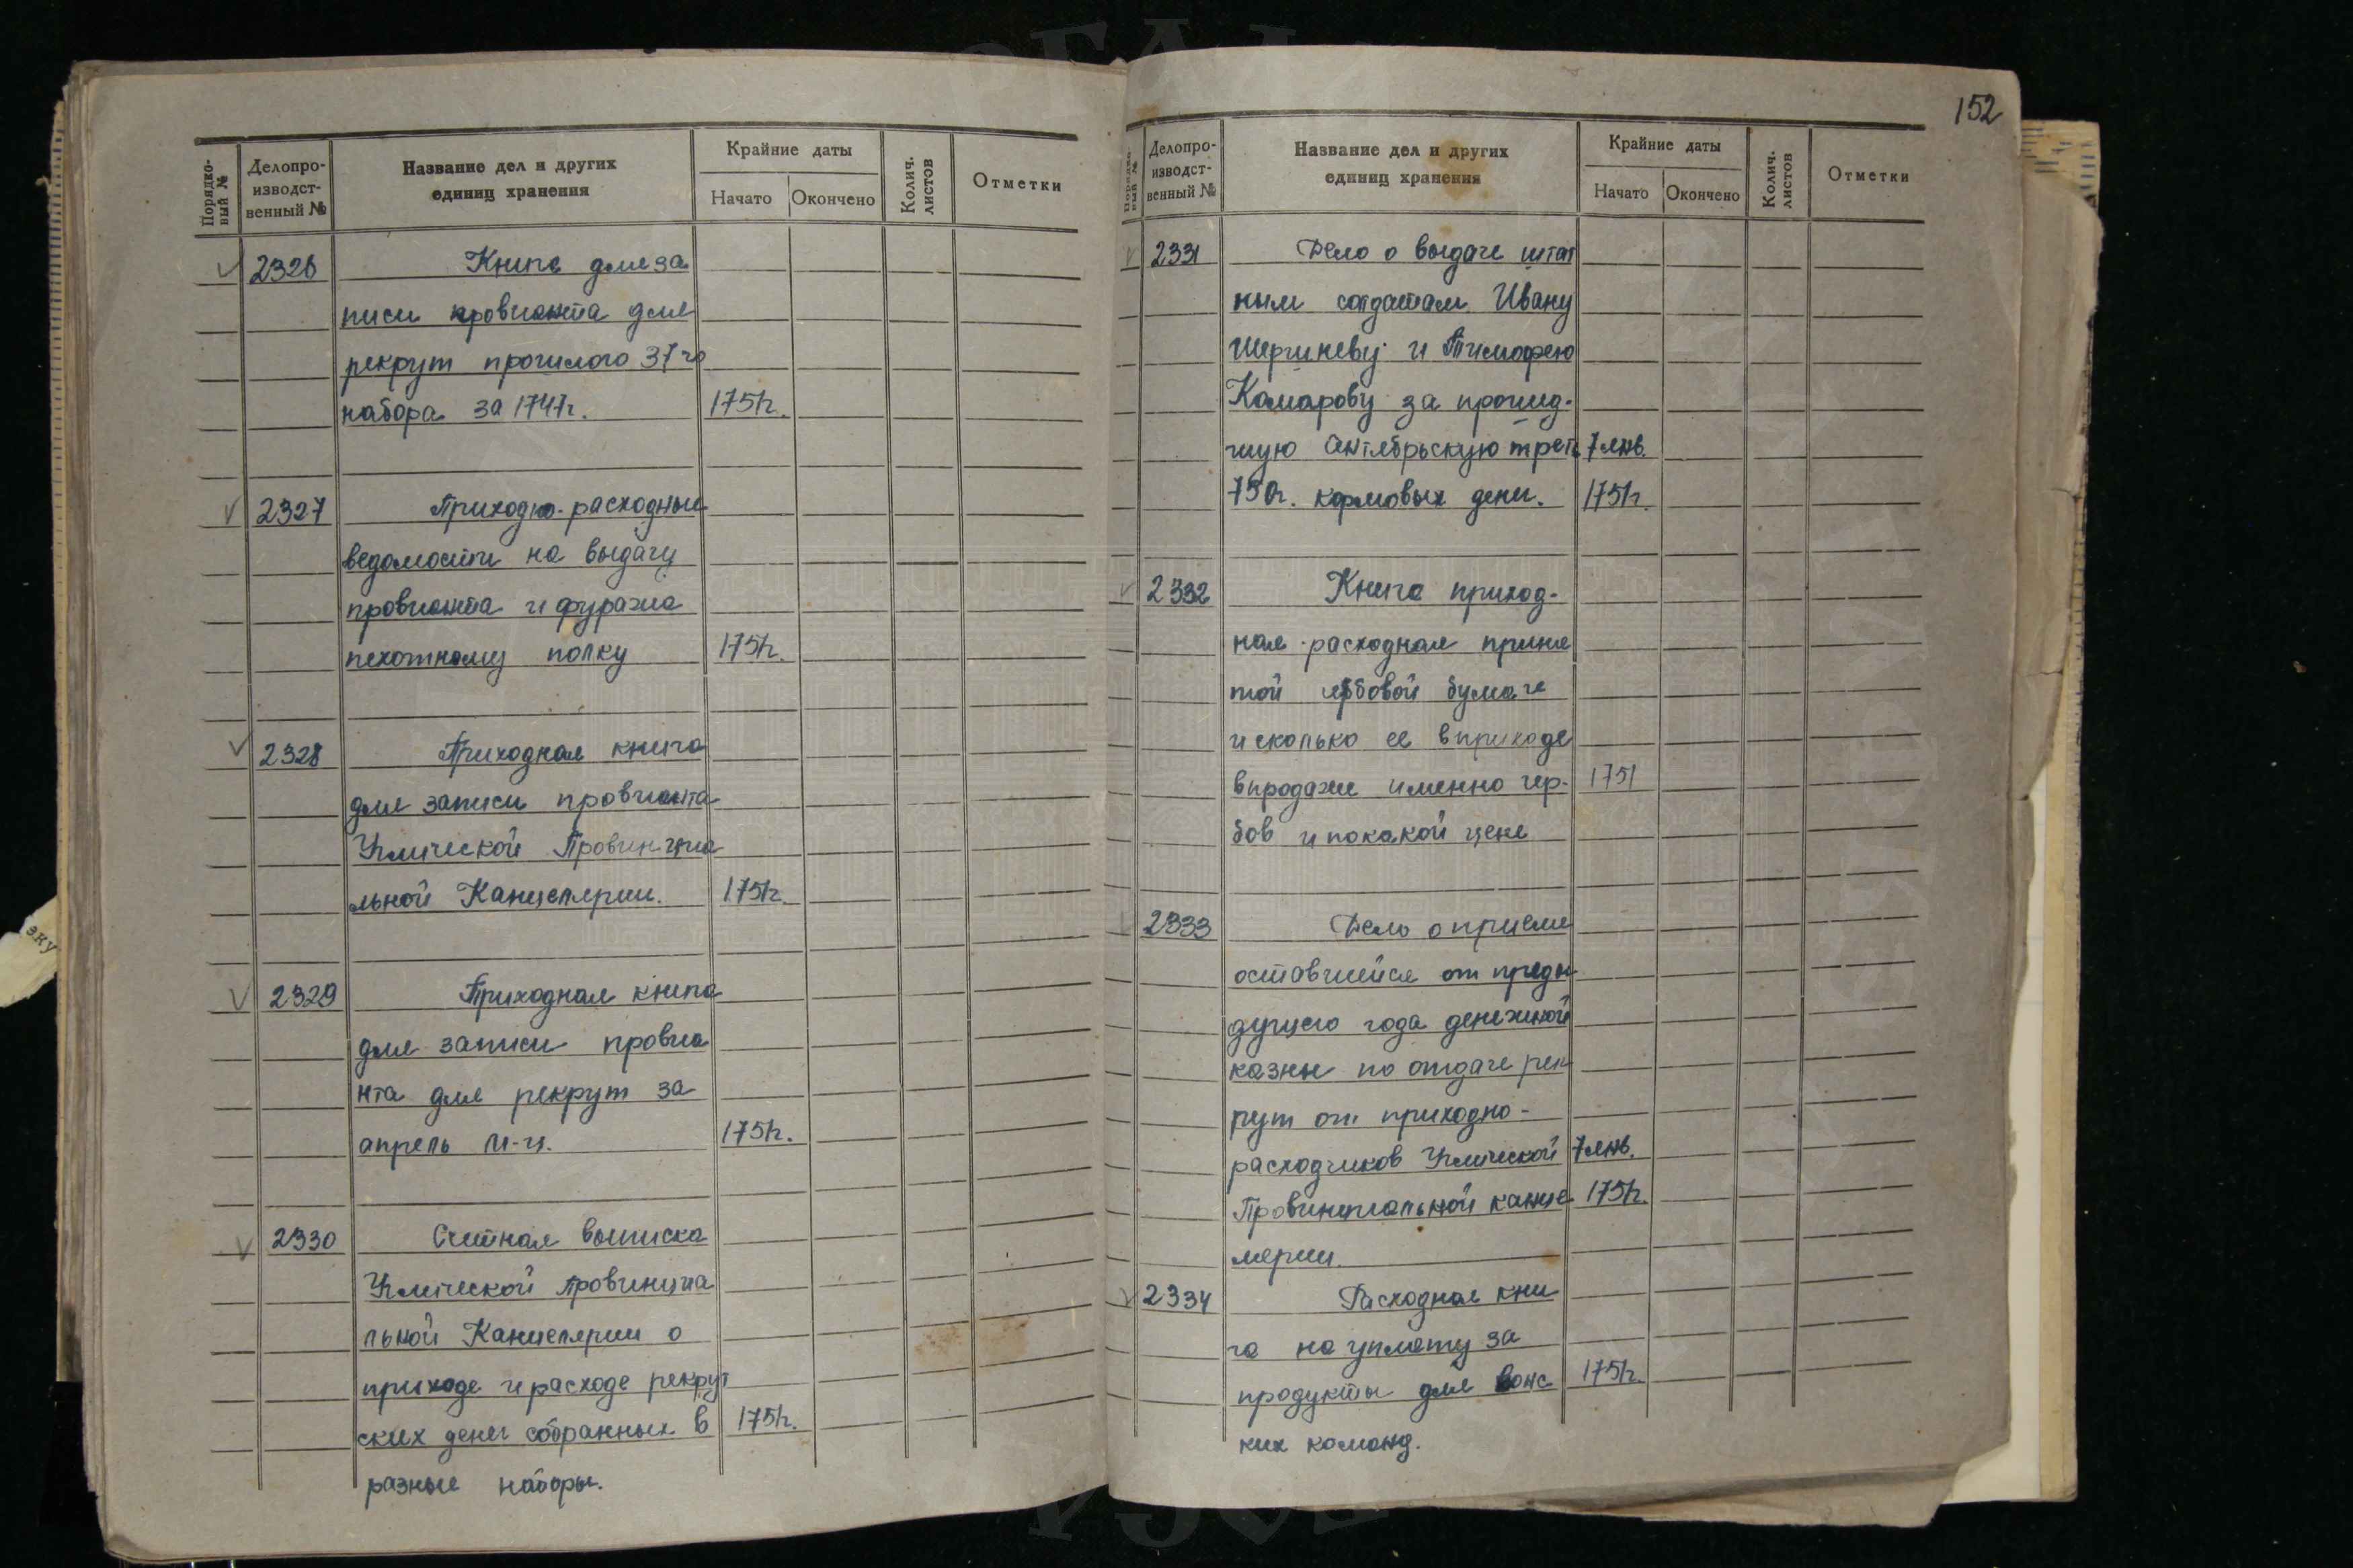 Порядко-
вый №
Делопро-
изводст-
венный №
Название дел и других
единиц хранения
Крайние даты
Начато
Окончено
Колич.
листов
Отметки
2326 Книга для за
писи провианта для
рекрут прошлого 37го
набора за 1747г. 1751г.
2327 Приходно-расходные
ведомости на выдачу
провианта и фуража
пехотному полку 1751г.
2328 Приходная книга
для записи провианта
Углической Провинциа
льной Канцелярии. 1751г.
2329 Приходная книга
для записи провиа
нта для рекрут за
апрель м-ц. 1751г.
2330 Счетная выписка
Углической Провинциа
льной Канцелярии о
приходе и расходе рекрут
ских денег собранных в 1751г.
разные наборы.
152
Порядко-
вый №
Делопро-
изводст-
венный №
Название дел и других
единиц хранения
Крайние даты
Начато
Окончено
Колич.
листов
Отметки
2331 Дело о выдаче штат
ным солдатам Ивану
Шергиневу и Тимофею
Комарову за прошед-
шую сентябрьскую треть 7 янв.
750г. кормовых денег. 1751г.
2332 Книга приход-
ная-расходная приня
той гербовой бумаге
и сколько ее в приходе
в продаже именно гер- 1751
бов и по какой цене
2333 Дело о приеме
оставшейся от преды
дущего года денежной
казны по отдаче рек
рут от приходно-
расходчиков Углической 7 янв.
Провинциальной канце 1751г.
лярии.
2334 Расходная кни
га на уплату за
продукты для воинс 1751г.
ких команд.
эку